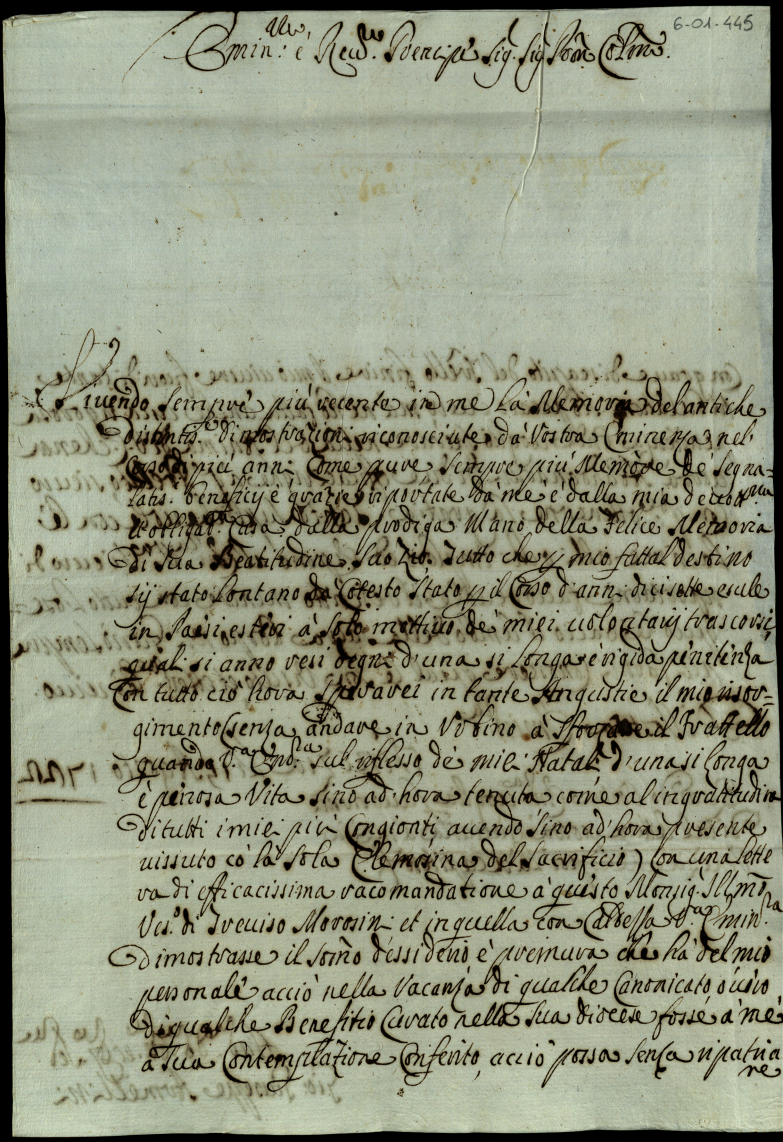 6-01-445
Emin.mo è Reu.mo Prencipe Sig. Sig. Pron Colmo.
Viuendo sempre più recente in me la Memoria del'antiche
distintis.e dimostrationi riconosciute da Vostra Eminenza nel
Corso di più anni Come pure sempre più Memore de segna=
latis.i benefitij è grazie riportate da me è dalla mia
Casa dalla prodiga Mano della Felice Memoria
di Sua Beatitudine Suo Zio. Tutto che p mio fattal destino
sij stato lontano da Cotesto Stato p il Corso d'anni dicisette esule
in Paesi esteri à solo mottiuo de miei uolontarij trascorsi,
quali si anno resi degni d'una si longa è rigida penitenza
Con tutto ciò hora sperarei in tante Angustie il mio risor=
gimento (senza andare in Vrbino à il Frattello
quando V.a Em.a sul riflesso de miei Natali d'una si longa
è penosa Vita sino ad'hora tenuta come al ingratitudine
di tutti i miei più Congionti auendo sino ad'hora presente
uissuto cò la sola Elemosina del Sacrificio) Con una lette
ra di efficacissima racomandatione à questo Monsig. Illmo
Ves.o di Treuiso Morosini et in quella con Caldezza V.a Emin.za
Dimostrasse il somo dessiderio è premura che hà del mio
personale acciò nella Vacanza di qualche Canonicato ò uero
di qualche Benefitio Curato nella Sua diocese fosse à me
à Sua Contemplazione Conferito, acciò possa senza ripatria
re